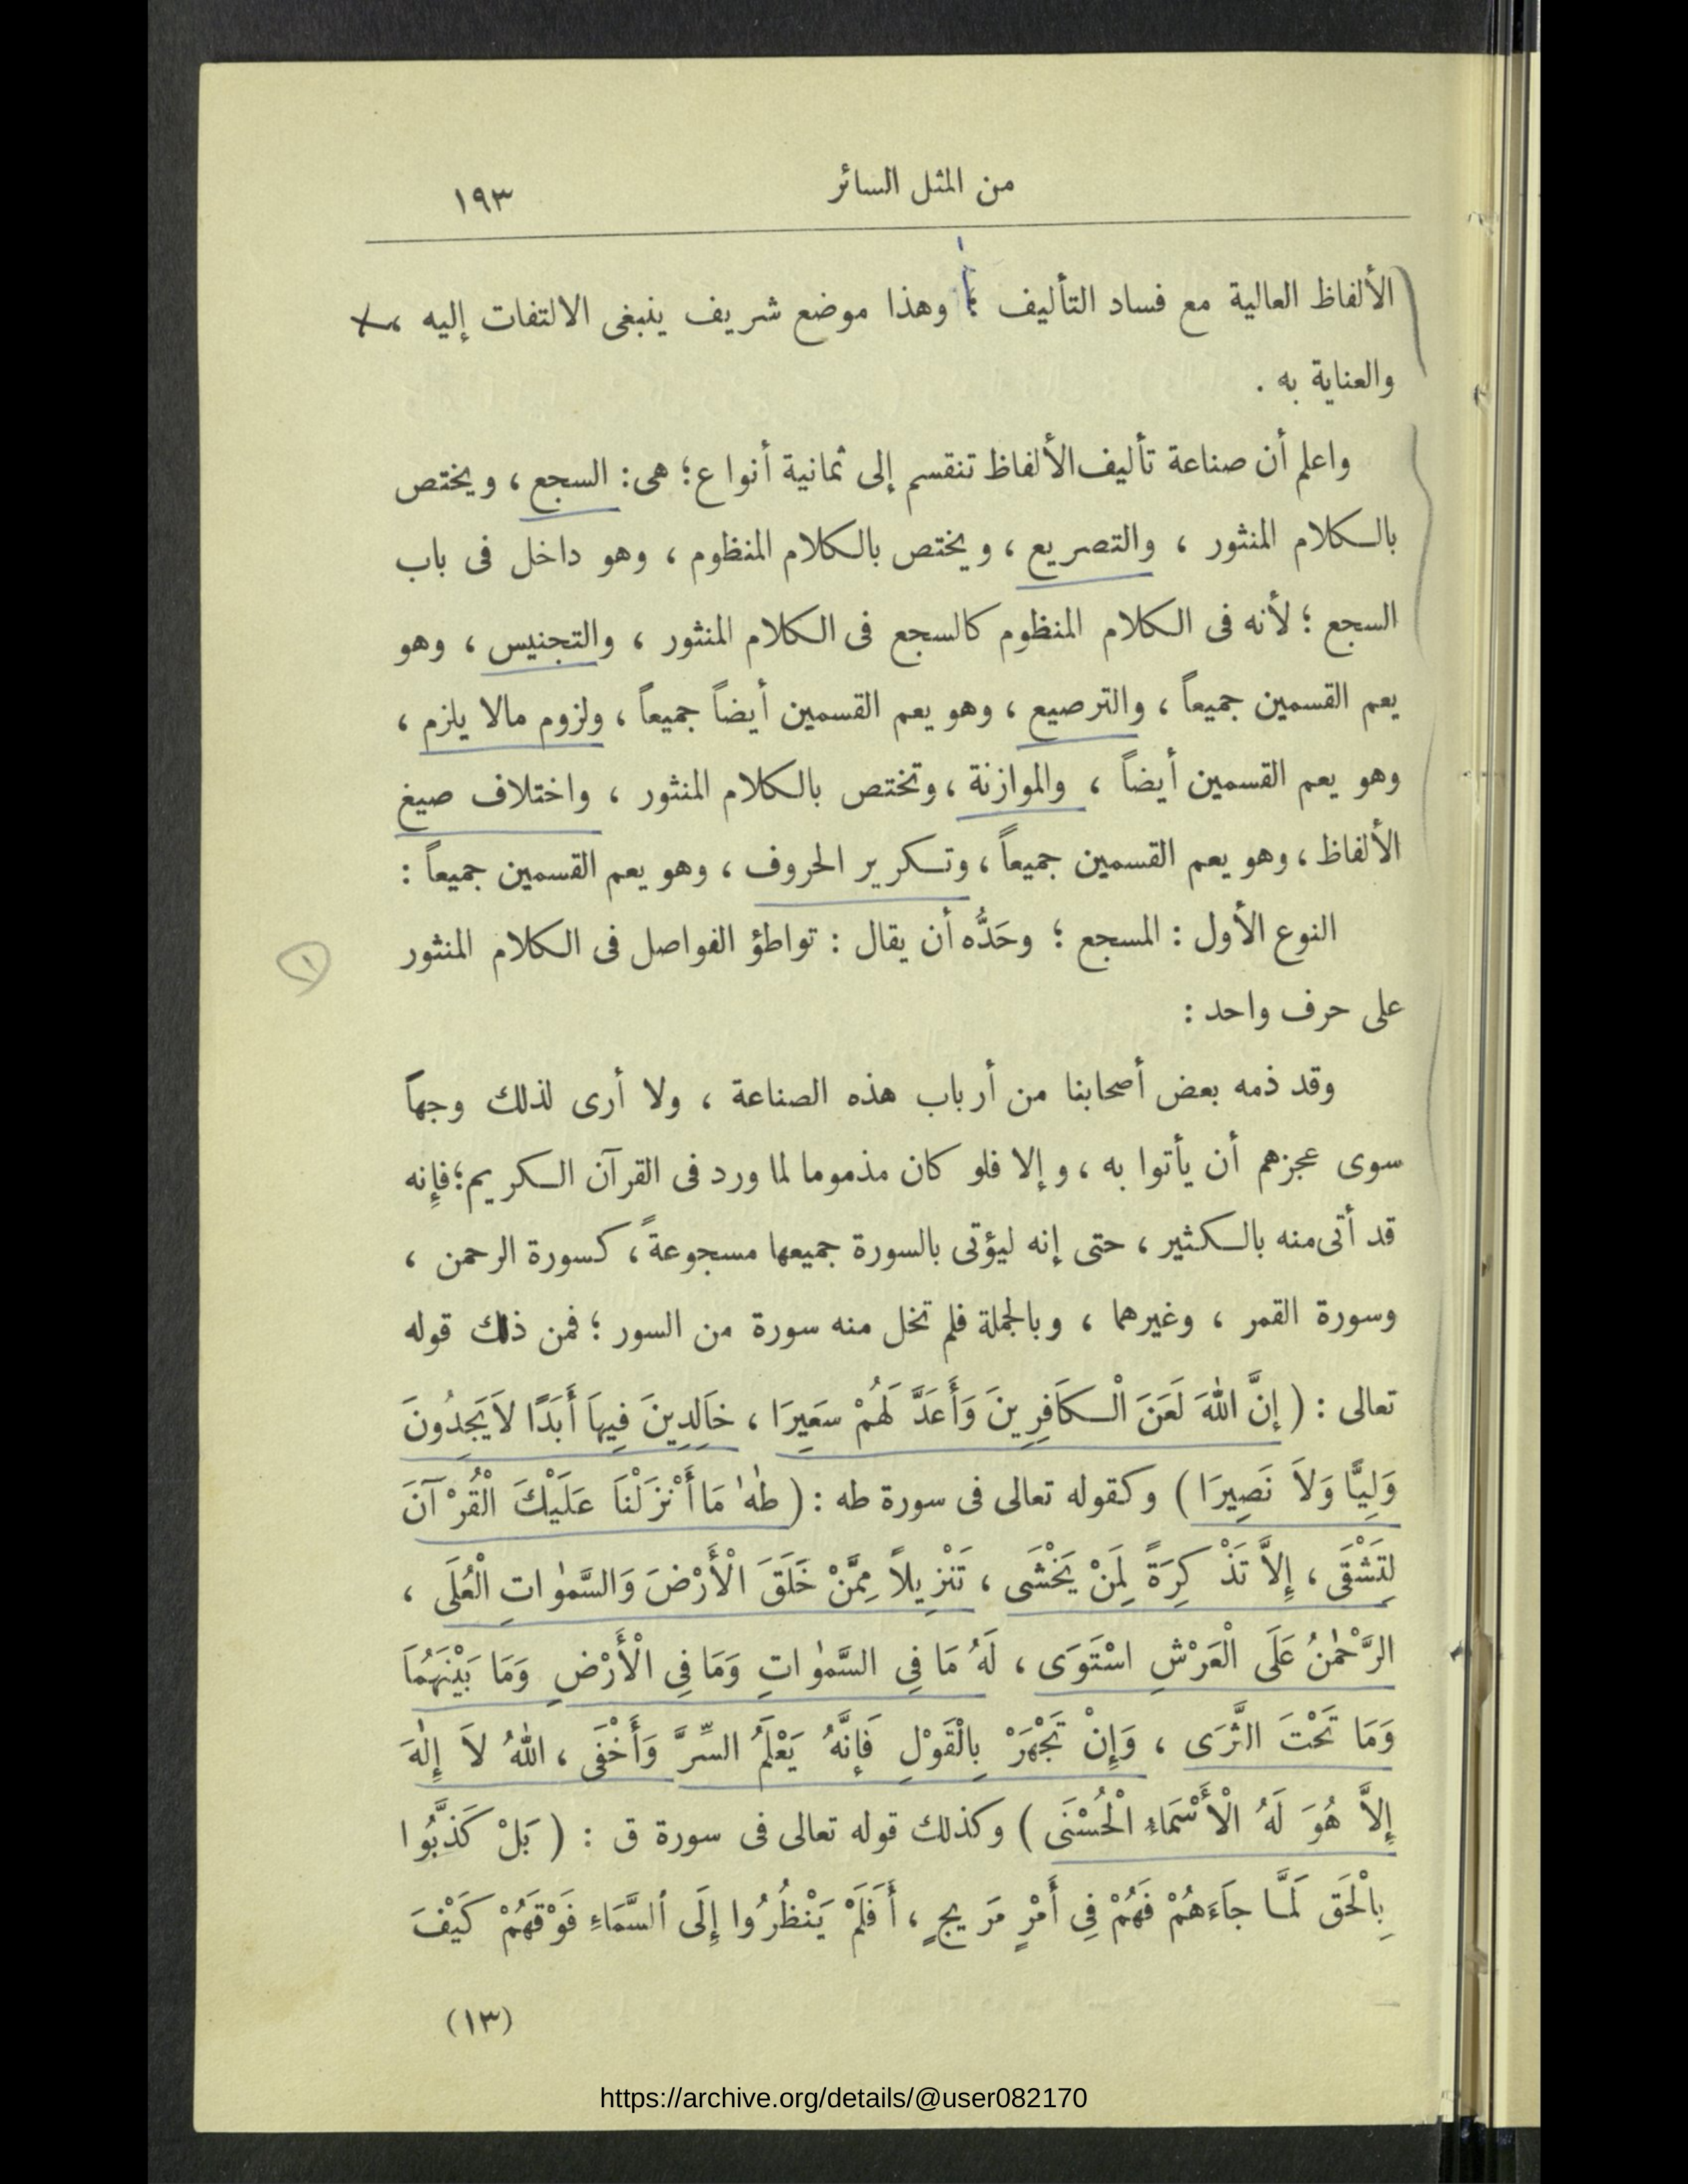 من المثل السائر ١٩٣
الألفاظ العالية مع فساد التأليف ؛ وهذا موضع شريف ينبغى الالتفات إليه
والعناية به .
واعلم أن صناعة تأليف الألفاظ تنقسم إلى ثمانية أنواع ؛ هى : السجع ، ويختص
بالكلام المنثور ، والتصريع ، ويختص بالكلام المنظوم ، وهو داخل فى باب
السجع ؛ لأنه فى الكلام المنظوم كالسجع فى الكلام المنثور ، والتجنيس ، وهو
يعم القسمين جميعاً ، والترصيع ، وهو يعم القسمين أيضاً جميعاً ، ولزوم مالا يلزم ،
وهو يعم القسمين أيضاً ، والموازنة ، وتختص بالكلام المنثور ، واختلاف صيغ
الألفاظ ، وهو يعم القسمين جميعاً ، وتكرير الحروف ، وهو يعم القسمين جميعاً :
النوع الأول : المسجع ؛ وحَدُّه أن يقال : تواطؤ الفواصل فى الكلام المنثور
١
على حرف واحد :
وقد ذمه بعض أصحابنا من أرباب هذه الصناعة ، ولا أرى لذلك وجهاً
سوى عجزهم أن يأتوا به ، وإلا فلو كان مذموما لما ورد فى القرآن الكريم ؛ فإنه
قد أتى منه بالكثير ، حتى إنه ليؤتى بالسورة جميعها مسجوعةً ، كسورة الرحمن ،
وسورة القمر ، وغيرهما ، وبالجملة فلم تخل منه سورة من السور ؛ فمن ذلك قوله
تعالى : ( إنَّ اللهَ لَعَنَ الْكَافِرِينَ وَأَعَدَّ لَهُمْ سَعِيرَا ، خاَلِدِينَ فِيهاَ أَبَدًا لاَيَجِدُونَ
وَلِيًّا وَلاَ نَصِيرَا ) وكقوله تعالى فى سورة طه : ( طٰهٰ مَا أَنْزَلْنَا عَلَيْكَ الْقُرْآنَ
لِتَشْقَى ، إِلاَّ تَذْكِرَةً لِمَنْ يَخْشَى ، تَنْزِيلاً مِمَّنْ خَلَقَ الْأَرْضَ وَالسَّمٰوَاتِ الْعُلَى ،
الرَّحْمٰنُ عَلَى الْعَرْشِ اسْتَوَى ، لَهُ مَا فِي السَّمٰوَاتِ وَمَا فِي الْأَرْضِ وَمَا بَيْنَهُمَا
وَمَا تَحْتَ الثَّرَى ، وَإِنْ تَجْهَرْ بِالْقَوْلِ فَإِنَّهُ يَعْلَمُ السِّرَّ وَأَخْفَى ، اللهُ لاَ إِلٰهَ
إِلاَّ هُوَ لَهُ الْأَسْمَاءُ الْحُسْنَى ) وكذلك قوله تعالى فى سورة ق : ( بَلْ كَذَّبُوا
بِالْحَقِ لَمَّا جَاءَهُمْ فَهُمْ فِي أَمْرٍ مَرِيجٍ ، أَفَلَمْ يَنْظُرُوا إِلَى السَّمَاءِ فَوْقَهُمْ كَيْفَ
(١٣)
https://archive.org/details/@user082170